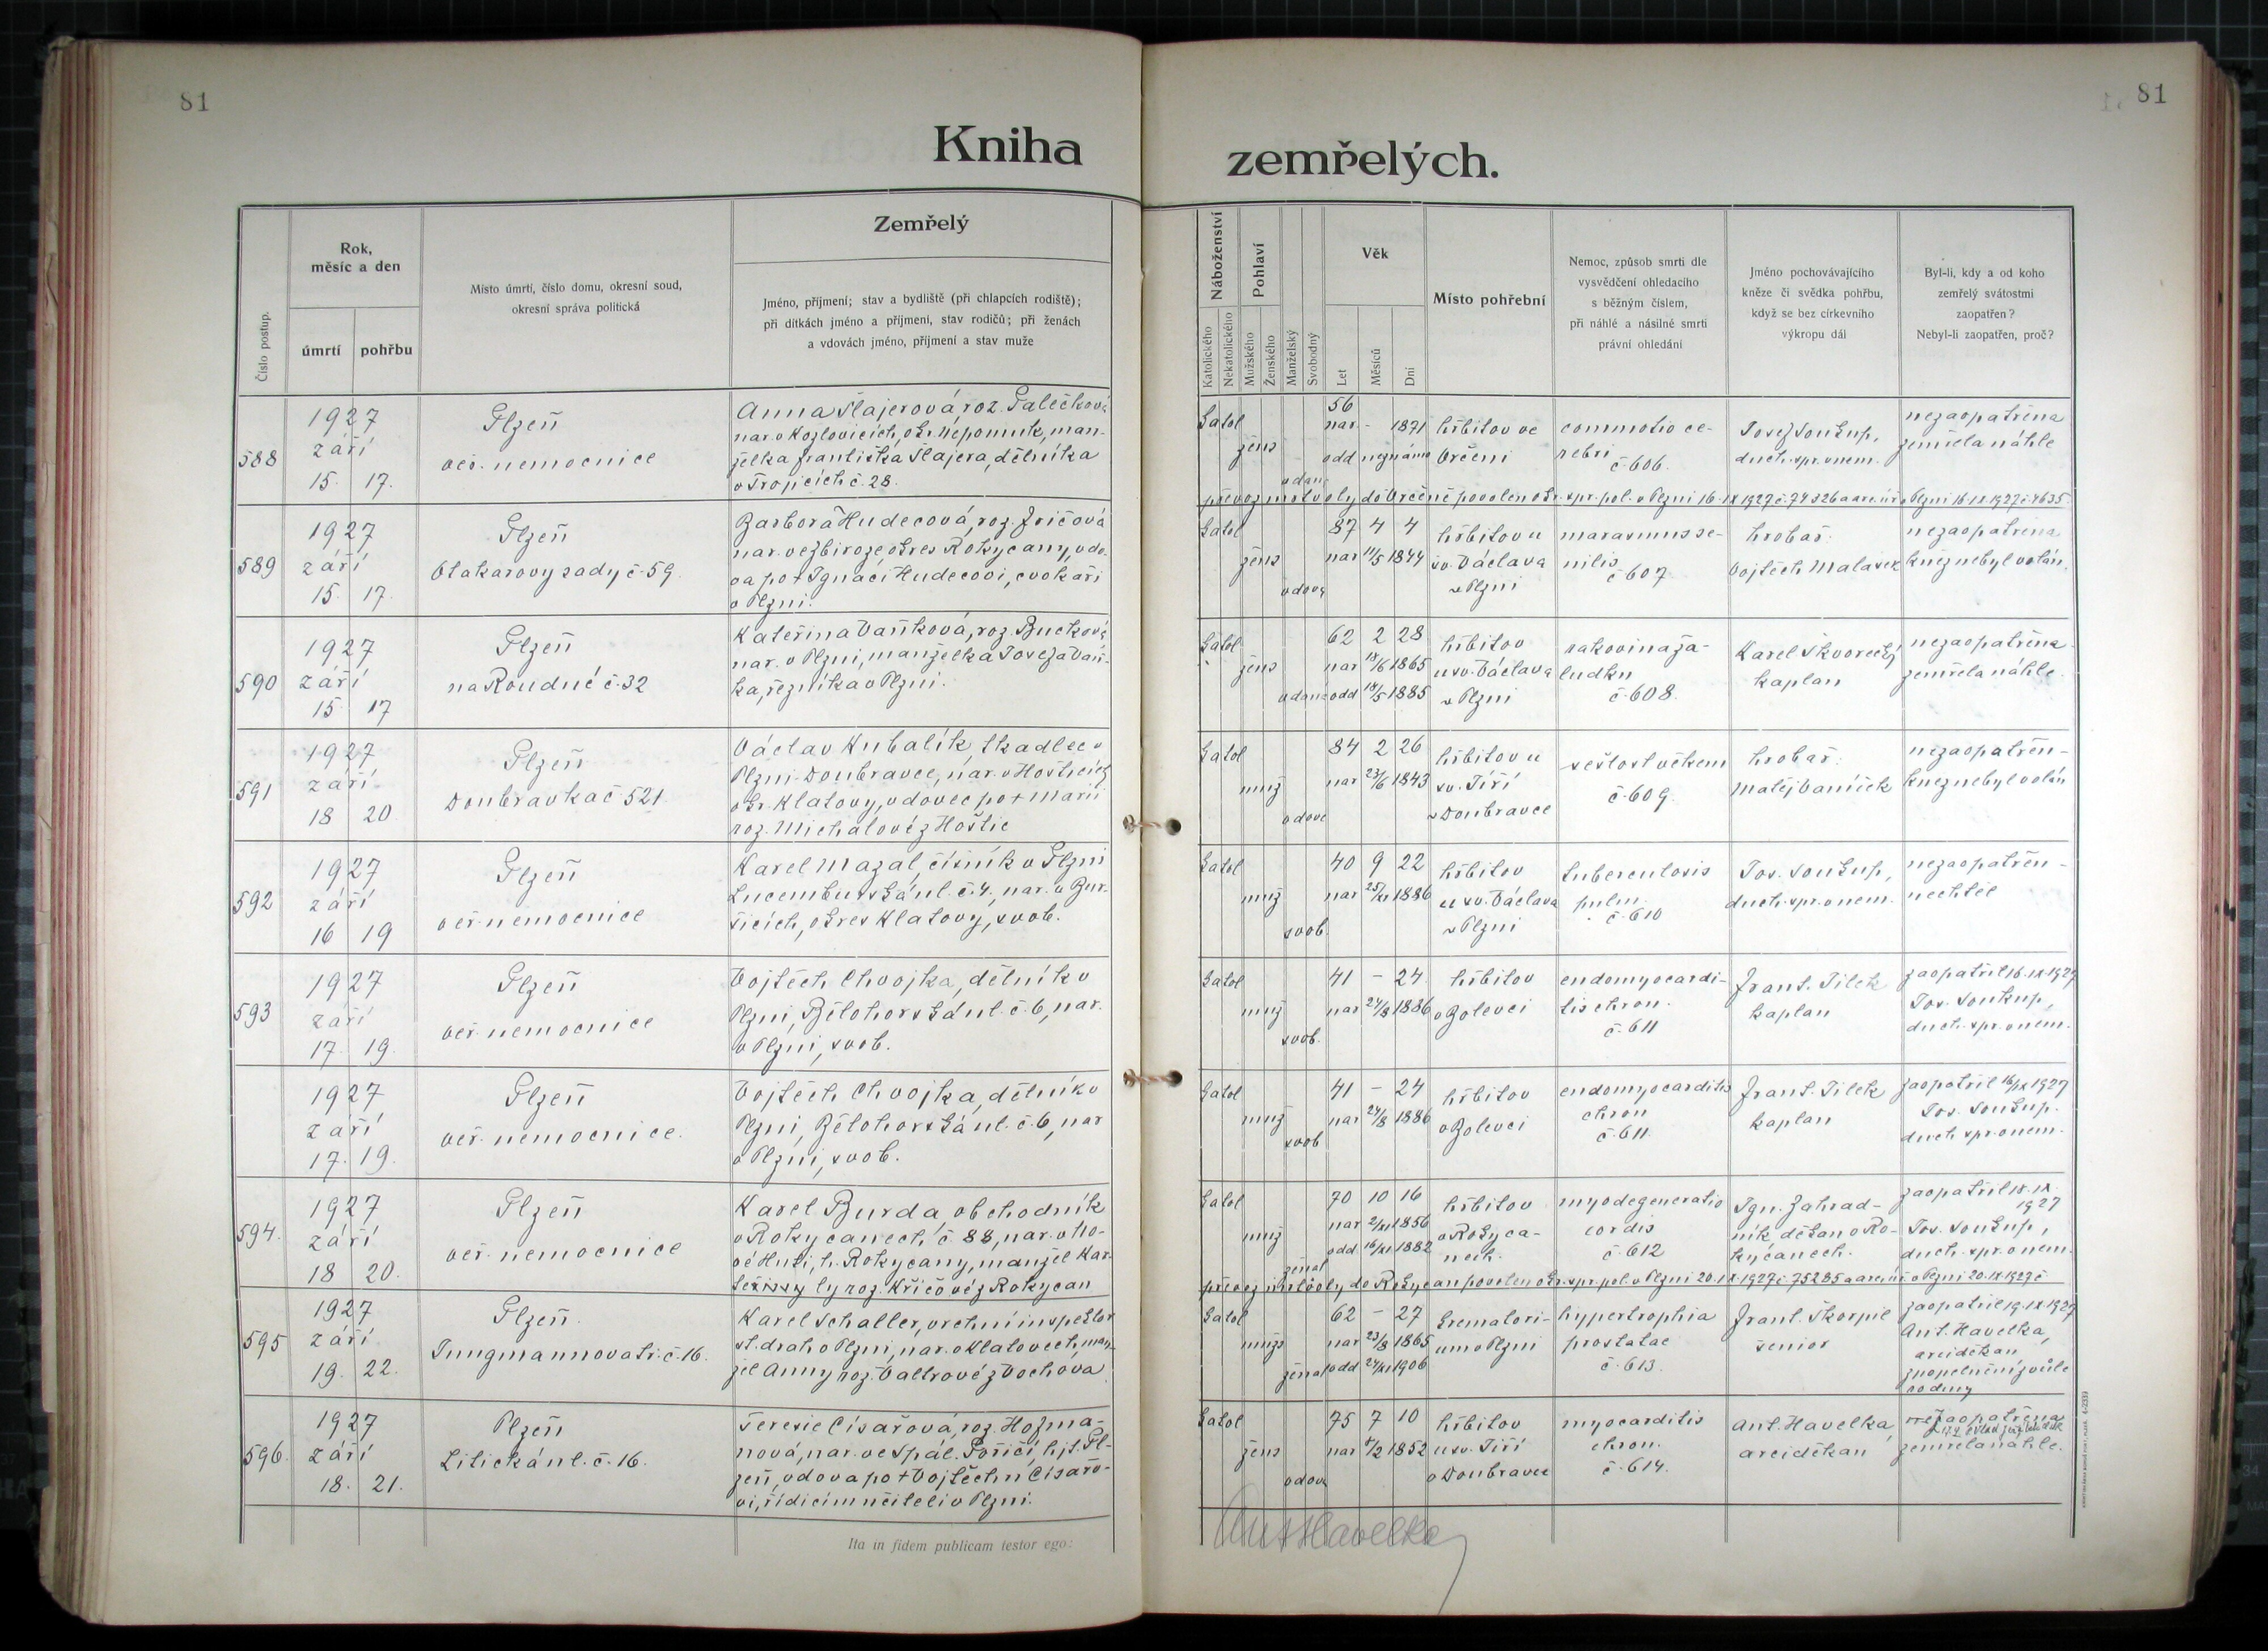 81
81
Kniha
zemřelých.
Číslo postup.
Rok,
měsíc a den
úmrtí
pohřbu
Místo úmrtí, číslo domu, okresní soud,
okresní správa politická
Zemřelý
Jméno, příjmení; stav a bydliště (při chlapcích rodiště);
při dítkách jméno a příjmení, stav rodičů; při ženách
a vdovách jméno, příjmení a stav muže
Náboženství
Katolického
Nekatolického
Pohlaví
Mužského
Ženského
Manželský
Svobodný
Věk
Let
Měsíců
Dní
Místo pohřební
Nemoc, způsob smrti dle
vysvědčení ohledacího
s běžným číslem,
při náhlé a násilné smrti
právní ohledání
Jméno pochovávajícího
kněze či svědka pohřbu,
když se bez církevního
výkropu dál
Byl-li, kdy a od koho
zemřelý svátostmi
zaopatřen?
Nebyl-li zaopatřen, proč?
588
1927
září
15. 17.
Plzeň
veř. nemocnice
Anna Šlajerová roz. Palečková
nar. v Kozlovicích, okr. Nepomuk, man-
želka Františka Šlajera, dělníka
v Trojicích č. 28.
katol
žens
vdan
56
nar. - 1871
odd neznámo
hřbitov ve
Vrčeni
commotio ce-
rebri
č. 606.
Josef Soukup,
duch. spr. v nem.
nezaopatřena
zemřela náhle
převoz mrtvoly do Vrčeně povolen okr. spr. pol. v Plzni 16. IX 1927 č. 74326 a arc. úř. v Plzni 16. IX. 1927 č. 4635.
589
1927
září
15. 17.
Plzeň
Otakarovy sady č. 59.
Barbora Hudecová, roz. Jričová
nar. ve Zbiroze okres Rokycany, vdo-
va po + Ignáci Hudecovi, cvokaři
v Plzni.
katol
žens
vdova
87 4 4
nar 11/5 1844
hřbitov u
sv. Václava
v Plzni
marasmus se-
nilis
č. 607
hrobař:
Vojtěch Malásek
nezaopatřena
kněz nebyl volán.
590
1927
září
15 17
Plzeň
na Roudné č. 32
Kateřina Vaňková, roz. Bucková
nar. v Plzni, manželka Josefa Vaň-
ka, řezníka v Plzni.
katol
žens
vdaná
62 2 28
nar 18/6 1865
odd 18/5 1885
hřbitov
u sv. Václava
v Plzni
rakovina ža-
ludku
č. 608.
Karel Škvorecký
kaplan
nezaopatřena
zemřela náhle.
591
1927
září
18 20
Plzeň
Doubravka č. 521
Václav Kubalík, tkadlec v
Plzni-Doubravce, nar. v Hošticích
okr. Klatovy, vdovec po + Marii
roz. Michalové z Hoštic
katol
muž
vdove
84 2 26
nar 23/6 1843
hřbitov u
sv. Jiří
v Doubravce
sešlost věkem
č. 609.
hrobař:
Matěj Vaníček
nezaopatřen -
kněz nebyl volán
592
1927
září
16 19
Plzeň
veř. nemocnice
Karel Mazal, číšník v Plzni
Lucemburská ul. č. 4, nar. v Bur-
šicích, okres Klatovy, svob.
katol
muž
svob.
40 9 22
nar 25/XI 1886
hřbitov
u sv. Václava
v Plzni
tuberculosis
pulm.
č. 610
Jos. Soukup,
duch. spr. v nem.
nezaopatřen -
nechtěl
593
1927
září
17. 19.
Plzeň
veř. nemocnice
Vojtěch Chvojka, dělník v
Plzni, Bělohorská ul. č. 6, nar.
v Plzni, svob.
katol
muž
svob.
41 - 24
nar 24/8 1886
hřbitov
v Bolevci
endomyocardi-
tis chron.
č. 611
Frant. Jílek
kaplan
zaopatřil 16. IX. 1927
Jos. Soukup,
duch. spr. v nem.
1927
září
17. 19.
Plzeň
veř. nemocnice.
Vojtěch Chvojka, dělník v
Plzni, Bělohorská ul. č. 6, nar
v Plzni, svob.
katol
muž
svob
41 - 24
nar 24/8 1886
hřbitov
v Bolevci
endomyocarditis
chron
č. 611.
Frant. Jílek
kaplan
zaopatřil 16/IX 1927
Jos. Soukup.
duch. spr. v nem.
594.
1927
září
18 20.
Plzeň
veř. nemocnice
Karel Burda, obchodník
v Rokycanech č 88, nar. v No-
vé Huti, h. Rokycany, manžel Kar-
ly roz. Křičové z Rokycan
katol
muž
ženat
70 10 16
nar 2/XI 1856
odd. 16/XI 1882
hřbitov
v Rokyca-
nech.
myodegeneratio
cordis
č. 612
Ign. Zahrad-
ník děkan v Ro-
kycanech.
zaopatřil 18. IX.
1927
Jos. Soukup,
duch. spr. v nem.
převoz mrtvoly do Rokycan povolen okr. spr. pol. v Plzni 20. IX. 1927 č. 75285 a arc. úř. v Plzni 20. IX 1927 č
595
1927
září
19. 22.
Plzeň.
Jungmannova tř. č. 16.
Karel Schaller, vrchní inspektor
st. drah v Plzni, nar. v Klatovech, man-
žel Anny roz. Valtrové z Vochova
katol
mužs
ženat
62 - 27
nar 23/8 1865
odd 24/XI 1906
krematori-
um v Plzni
hypertrophia
prostatae
č. 613.
Frant. Škorpil
senior
zaopatřil 19. IX. 1927
Ant. Havelka,
arciděkan
zpopelnění z vůle
rodiny
596.
1927
září
18. 21.
Plzeň
Litická ul. č. 16.
Terezie Císařová, roz. Hofma-
nová, nar. ve Spál. Poříčí, hjt. Pl-
zeň, vdova po + Vojtěchu Císařo-
vi, řídicím učiteli v Plzni.
katol
žens
vdova
75 7 10
nar 8/2 1852
hřbitov
u sv. Jiří
v Doubravce
myocarditis
chron.
č. 614.
Ant. Havelka
arciděkan
nezaopatřena
zemřela náhle.
Ita in fidem publicam testor ego:
Ant Havelka